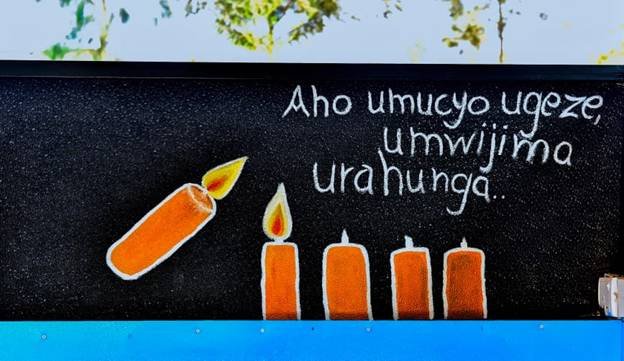 Aho umucyo ugeze,
umwijima
urahunga..